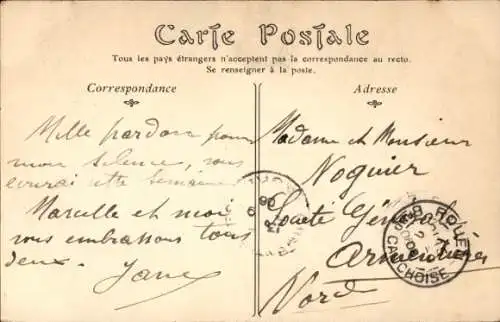 Carte Postale
Tous les pays étrangers n'acceptent pas la correspondance au recto.
Se renseigner à la poste.
Correspondance
Adresse
Mille pardons pour
mon silence, vous
écrirai cette semaine
Marcelle et moi
vous embrassons tous
deux.
Madame et Monsieur
Noguier
Société Générale
Armentières
Nord
ROUEN
CAUCHOISE